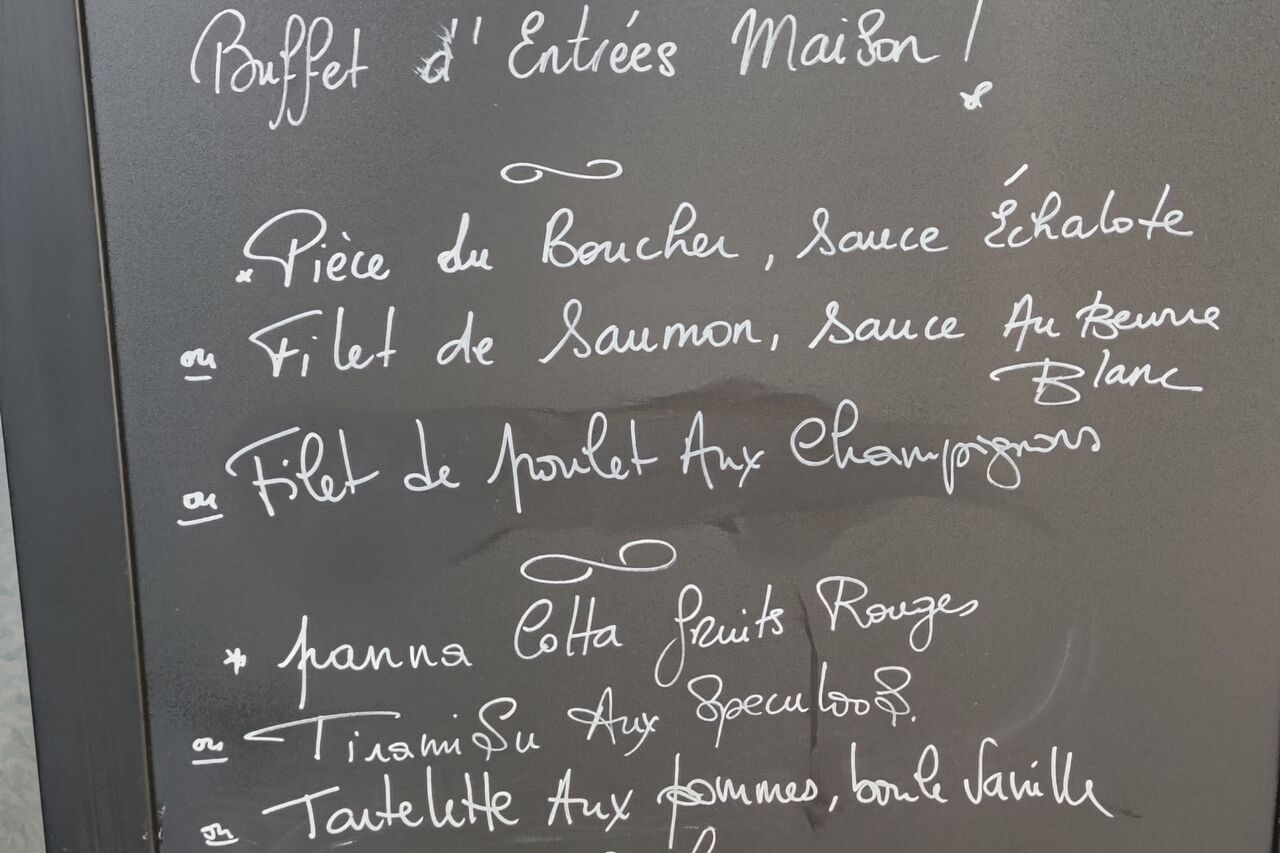 Buffet d'Entrées Maison !
* Pièce du Boucher, sauce Échalote
ou Filet de Saumon, sauce Au Beurre
Blanc
ou Filet de poulet Aux Champignons
* panna Cotta fruits Rouges
ou Tiramisu Aux Speculoos.
ou Tartelette Aux pommes, boule Vanille